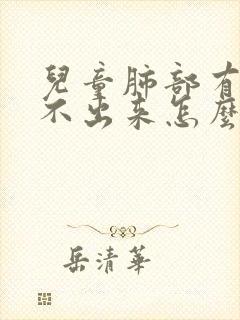 兒童肺部有
不出来怎麼
岳清華